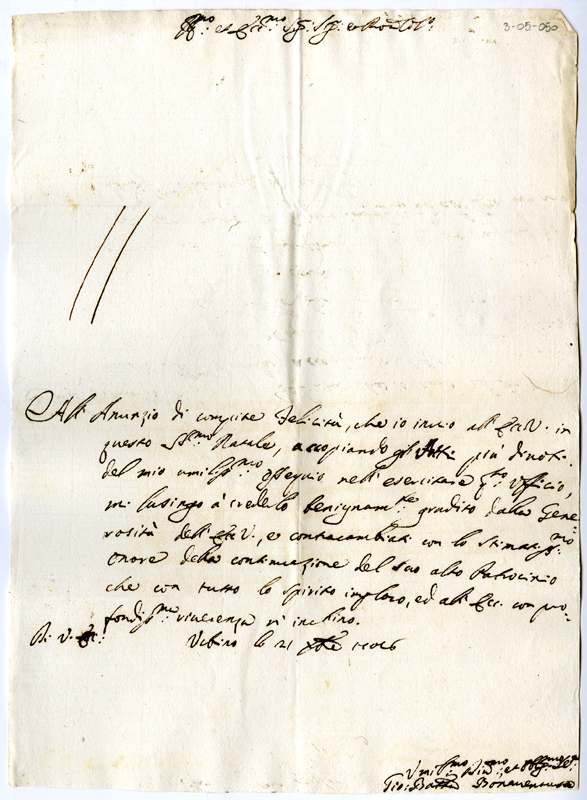 3-05-050
Ill.mo et Ecc.mo Sig.
All Anunzio di compite Felicità, che io invio all Ecc.V. in
questo SS.mo Natale, accopiando gli Atti più divoti
del mio umiliss.mo ossequio nell esercitare q.to Ufficio,
mi lusingo à crederlo benignam.te gradito dalla Gene-
rosità dell Ecc.V., e contracambiati con lo stimatiss.mo
onore della continuazione del suo alto Patrocinio
che con tutto lo spirito imploro, ed all Ecc. con pro-
fondiss.ma riverenza m' inchino.
Di V. Ecc.
Urbino li 21 Xbre
Umiliss.mo Div.mo et Obblig.mo
Gio: Batta Bonaventura